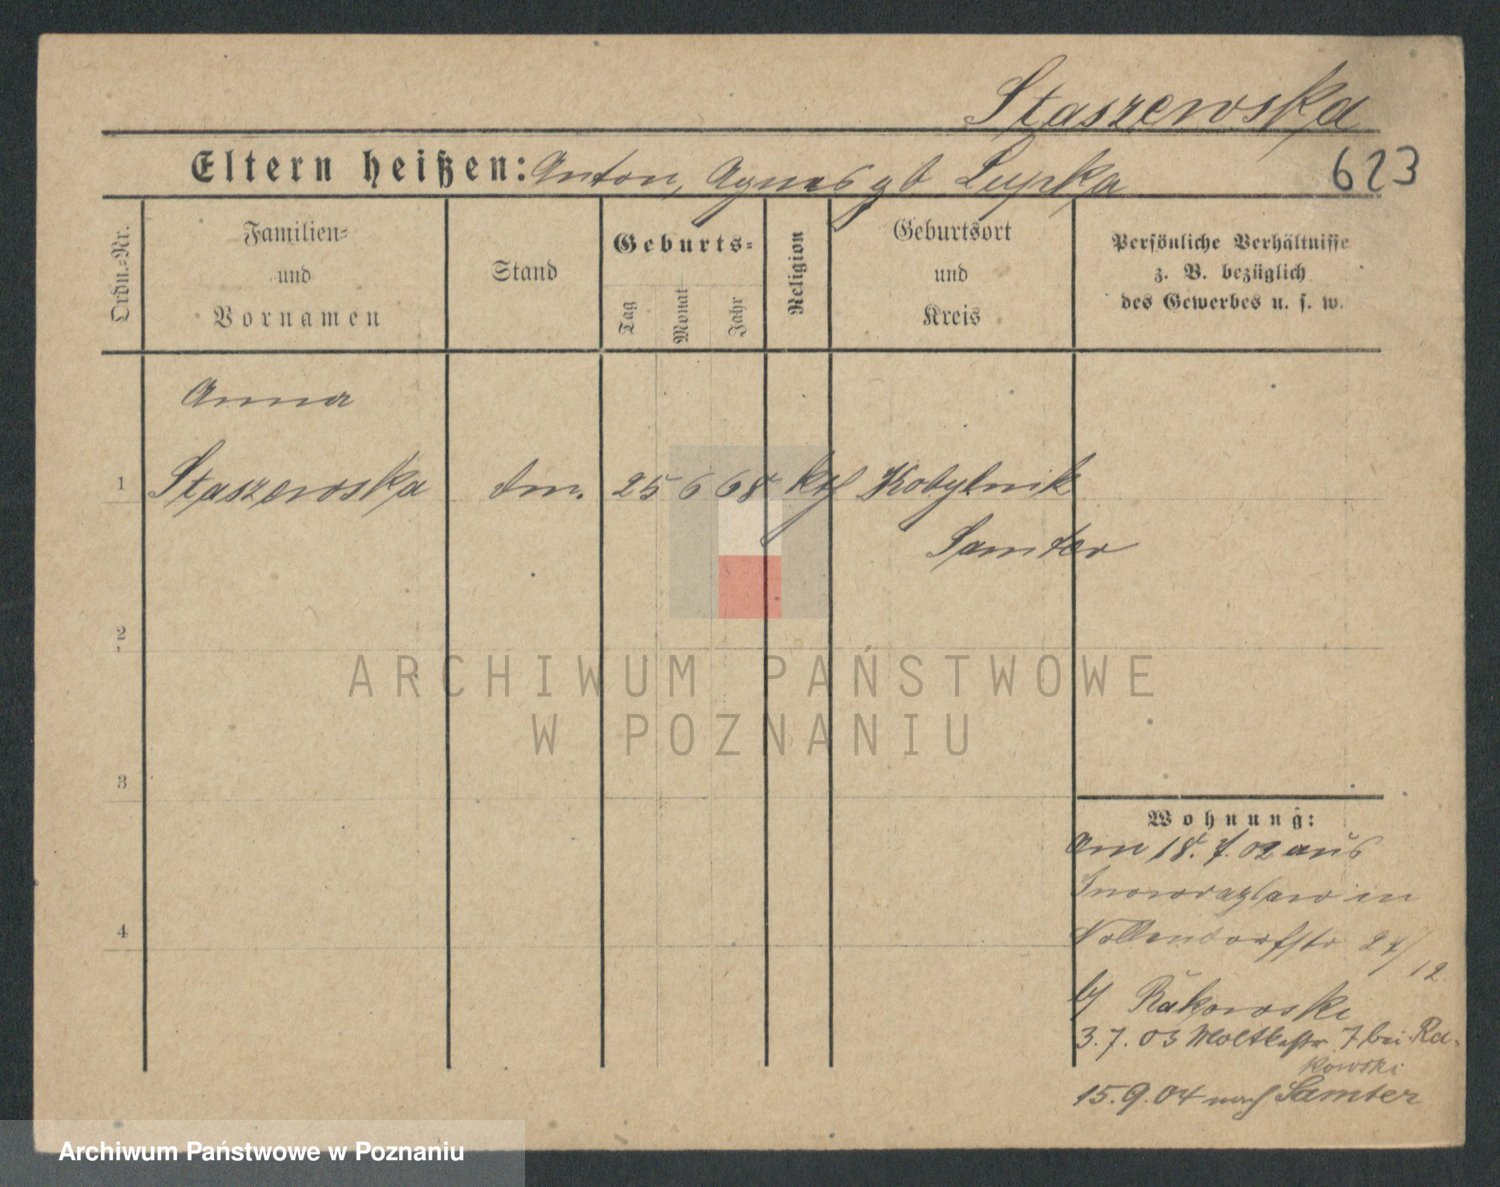 Staszewska
Eltern heißen: Anton, Agnes gb Lupka
623
Ordn.-Nr.
Familien-
und
Vornamen
Stand
Geburts-
Tag
Monat
Jahr
Religion
Geburtsort
und
Kreis
Persönliche Verhältnisse
z. B. bezüglich
des Gewerbes u. s. w.
Anna
1 Staszewska dm. 25 6 68 kth Kobylnik
Samter
2
ARCHIWUM PAŃSTWOWE
W POZNANIU
3
Wohnung:
Am 18. 7. 02 aus
Inowrazlaw in
Nollendorfstr 27/
12
b/ Rakowski
3. 7. 03 Moltkestr. 7 bei Ra-
kowski
4
15. 9. 04 nach Samter
Archiwum Państwowe w Poznaniu